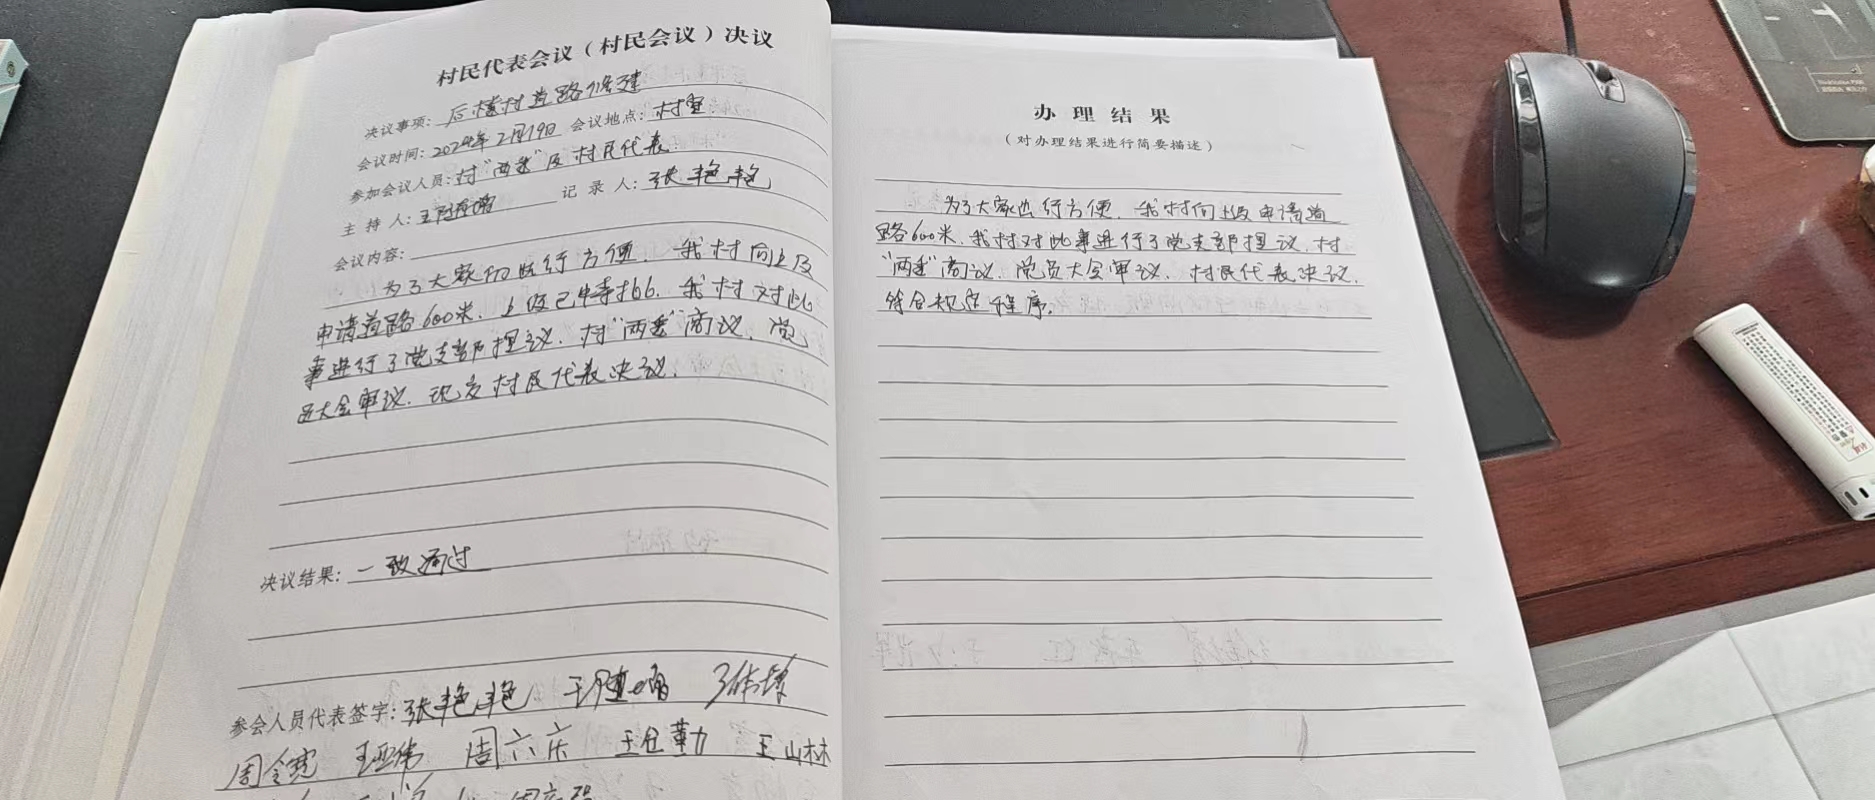 村民代表会议（村民会议）决议
决议事项：后横村道路修建
会议时间：2024年2月19日 会议地点：村室
参加会议人员：村“两委”及村民代表.
主 持 人： 记 录 人：张艳艳
会议内容：
为了大家的出行方便，我村向上级
申请道路600米，上级已审批，我村对此
事进行了党支部提议，村“两委”商议，党
员大会审议，现交村民代表决议.
决议结果：一致通过
参会人员代表签字：张艳艳
王亚伟 周六庆 王仓勤 王山林
办 理 结 果
（对办理结果进行简要描述）
为了大家出行方便，我村向上级申请道
路600米，我村对此事进行了党支部提议，村
“两委”商议，党员大会审议，村民代表决议，
符合规定程序.